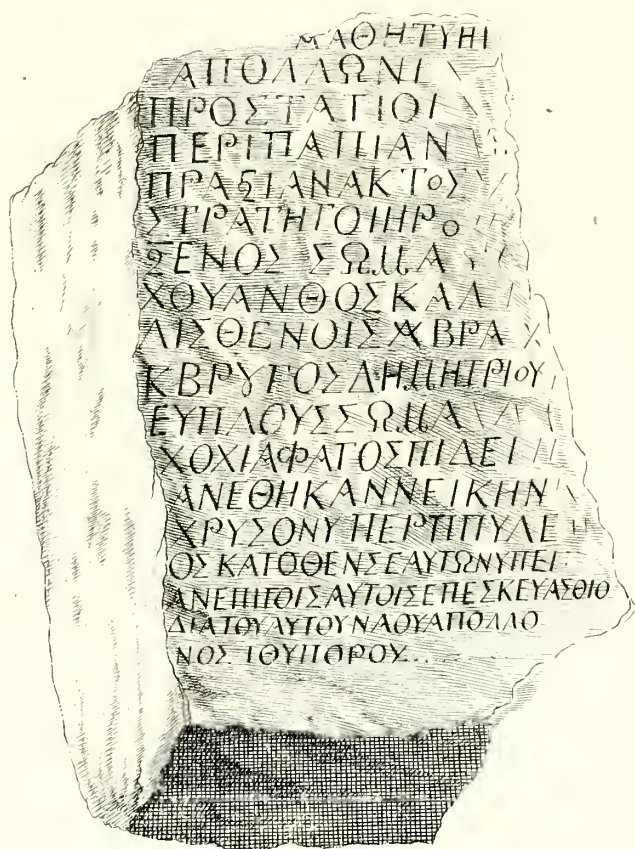 ΜΑΘΗΤΥΗΙ
ΑΠΟΛΛΩΝΙ
ΠΡΟΣΤΑΤΙΟΙ
ΠΕΡΙΠΑΠΙΑΝ
ΠΡΑΞΙΑΝΑΚΤΟΣ
ΣΤΡΑΤΗΓΟΙΗΡΟ
ΞΕΝΟΣ ΣΩΜΑ
ΧΟΥΑΝΘΟΣΚΑΛ
ΛΙΣΘΕΝΟΙΣΑΒΡΑΧ
ΚΒΡΥΓΟΣΔΗΜΗΤΡΙΟΥ
ΕΥΠΛΟΥΣΣΩΜΑ
ΧΟΧΙΑΦΑΓΟΣΠΙΔΕΙ
ΑΝΕΘΗΚΑΝΝΕΙΚΗΝ
ΧΡΥΣΟΝΥΠΕΡΤΠΠΥΛΕ
ΟΣΚΑΤΟΘΕΝΣΕΑΥΤΩΝΥΠΕΙ
ΑΝΕΠΙΤΟΙΣΑΥΤΟΙΣΕΠΕΣΚΕΥΑΣΘΙΟ
ΔΙΑΤΟΥΑΥΤΟΥΝΑΟΥΑΠΟΛΛΟ
ΝΟΣ ΙΘΥΠΟΡΟΥ